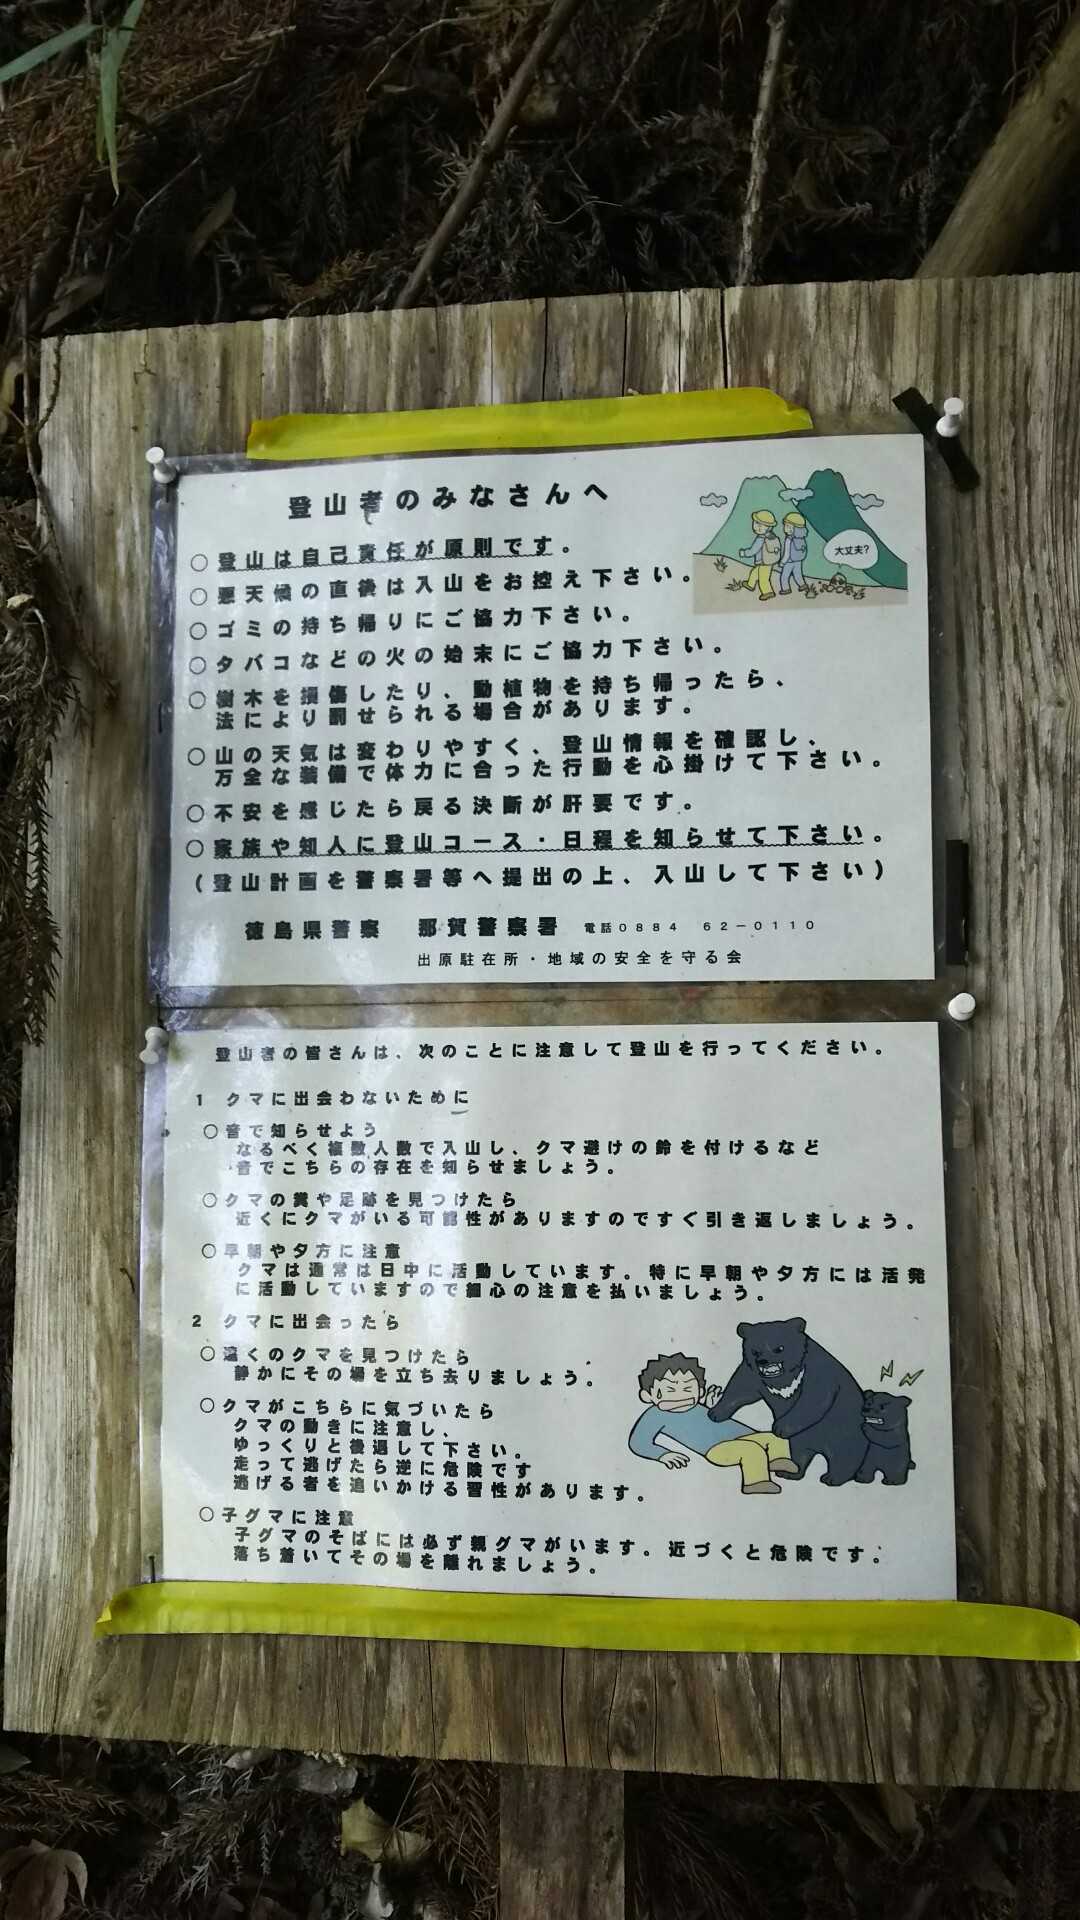 登山者のみなさんへ
大丈夫?
○登山は自己責任が原則です。
○悪天候の直後は入山をお控え下さい。
○ゴミの持ち帰りにご協力下さい。
○タバコなどの火の始末にご協力下さい。
○樹木を損傷したり、動植物を持ち帰ったら、
法により罰せられる場合があります。
○山の天気は変わりやすく、登山情報を確認し、
万全な装備で体力に合った行動を心掛けて下さい。
○不安を感じたら戻る決断が肝要です。
○家族や知人に登山コース・日程を知らせて下さい。
(登山計画を警察署等へ提出の上、入山して下さい)
徳島県警察 那賀警察署 電話0884 62-0110
出原駐在所・地域の安全を守る会
登山者の皆さんは、次のことに注意して登山を行ってください。
1 クマに出会わないために
○音で知らせよう
なるべく複数人数で入山し、クマ避けの鈴を付けるなど
音でこちらの存在を知らせましょう。
○クマの糞や足跡を見つけたら
近くにクマがいる可能性がありますのですぐ引き返しましょう。
○早朝や夕方に注意
クマは通常は日中に活動しています。特に早朝や夕方には活発
に活動していますので細心の注意を払いましょう。
2 クマに出会ったら
○遠くのクマを見つけたら
静かにその場を立ち去りましょう。
○クマがこちらに気づいたら
クマの動きに注意し、
ゆっくりと後退して下さい。
走って逃げたら逆に危険です
逃げる者を追いかける習性があります。
○子グマに注意
子グマのそばには必ず親グマがいます。近づくと危険です。
落ち着いてその場を離れましょう。